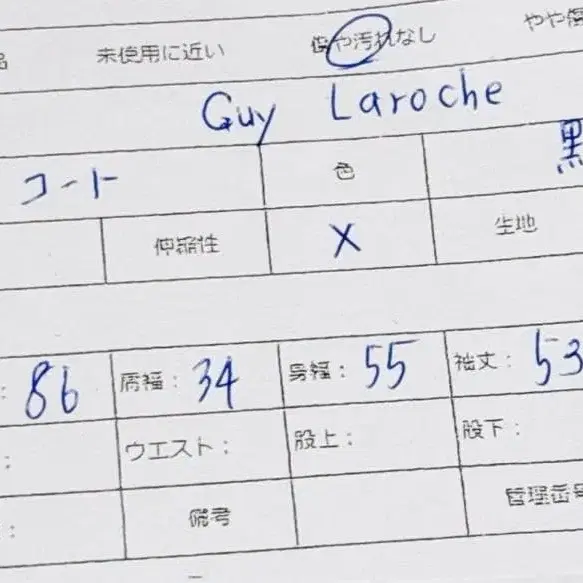 未使用に近い 傷や汚れなし やや傷
Guy Laroche
コート 色 黒
伸縮性 X 生地
: 86 肩幅: 34 身幅: 55 袖丈: 53
: ウエスト: 股上: 股下:
: 備考 管理番号